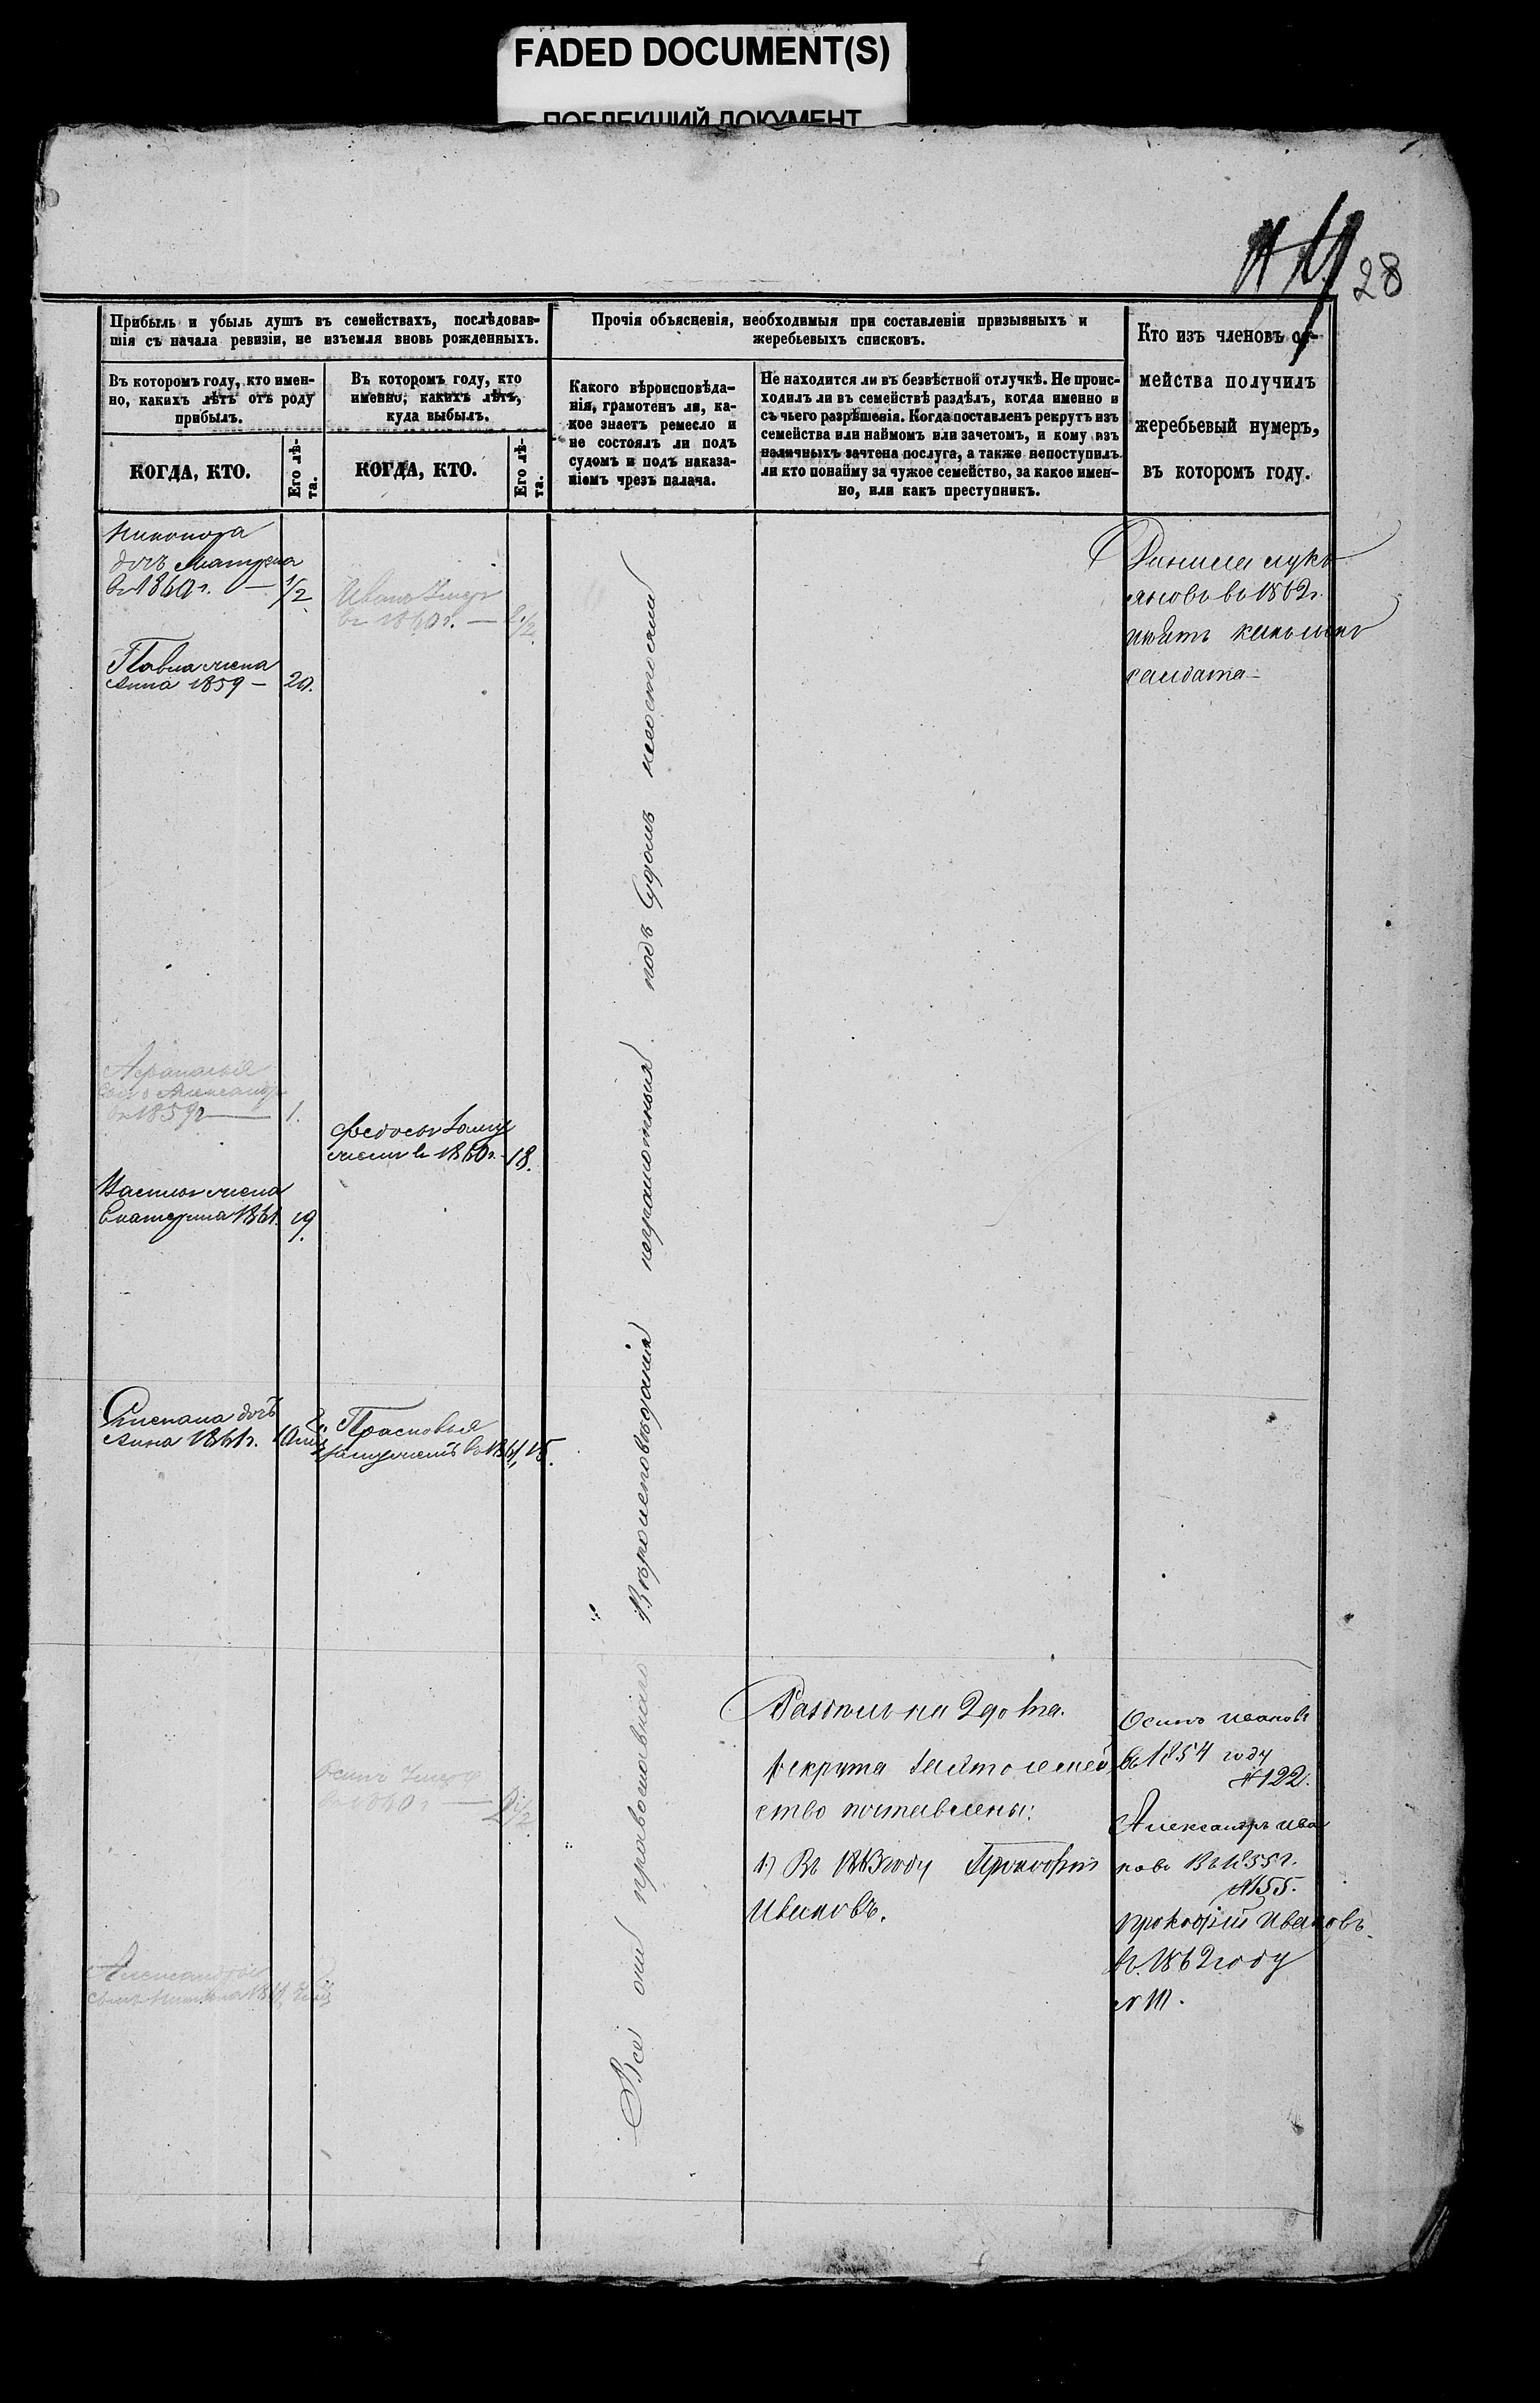 FADED DOCUMENT(S)
ПОБЛЕКШИЙ ДОКУМЕНТ
28
Прибыль и убыль душъ въ семействахъ, послѣдовав-
шія съ начала ревизіи, не изъемля вновь рожденныхъ.
Въ которомъ году, кто имен-
но, какихъ лѣтъ отъ роду
прибылъ.
Въ которомъ году, кто
именно, какихъ лѣтъ,
куда выбылъ.
КОГДА, КТО.
Его лѣ-
та.
КОГДА, КТО.
Его лѣ-
та.
Прочія объясненія, необходимыя при составленіи призывныхъ и
жеребьевыхъ списковъ.
Какого вѣроисповѣда-
нія, грамотенъ ли, ка-
кое знаетъ ремесло и
не состоялъ ли подъ
судомъ и подъ наказа-
ніемъ чрезъ палача.
Не находится ли въ безвѣстной отлучкѣ. Не проис-
ходилъ ли въ семействѣ раздѣлъ, когда именно и
съ чьего разрѣшенія. Когда поставленъ рекрутъ изъ
семейства или наймомъ или зачетомъ, и кому изъ
наличныхъ зачтена послуга, а также непоступилъ
ли кто понайму за чужое семейство, за какое имен-
но, или какъ преступникъ.
Кто изъ членовъ се-
мейства получилъ
жеребьевый нумеръ,
въ которомъ году.
дочь Матрена
въ 1860 г. — 1/2
Иванъ Умеръ
въ 1860 г. — 1/2
Павла жена
Анна 1859 — 20.
въ 1862 г.
солдата —
Афанасья
сынъ Александръ
въ 1859 г — 1.
Федосья Заму
жемъ въ 1860 г. 18.
жена
Екатерина 1861. 19.
Степана дочь
Анна 1861 г.
Прасковья
замужемъ въ 1861, 18.
Осипъ Умеръ
въ 1860 г
Александра
сынъ
Всѣ они православнаго Вѣроисповѣданія неграмотныя подъ Судомъ несостояли
рекрута за это семей
ство поставлены:
1) Въ 1863 году Прокофій
Ивановъ.
Осипъ Ивановъ
въ 1854 году
№ 122.
Александръ Ива
новъ Въ 1855 г.
№ 155.
Прокофій Ивановъ
въ 1862 году
№ 111.